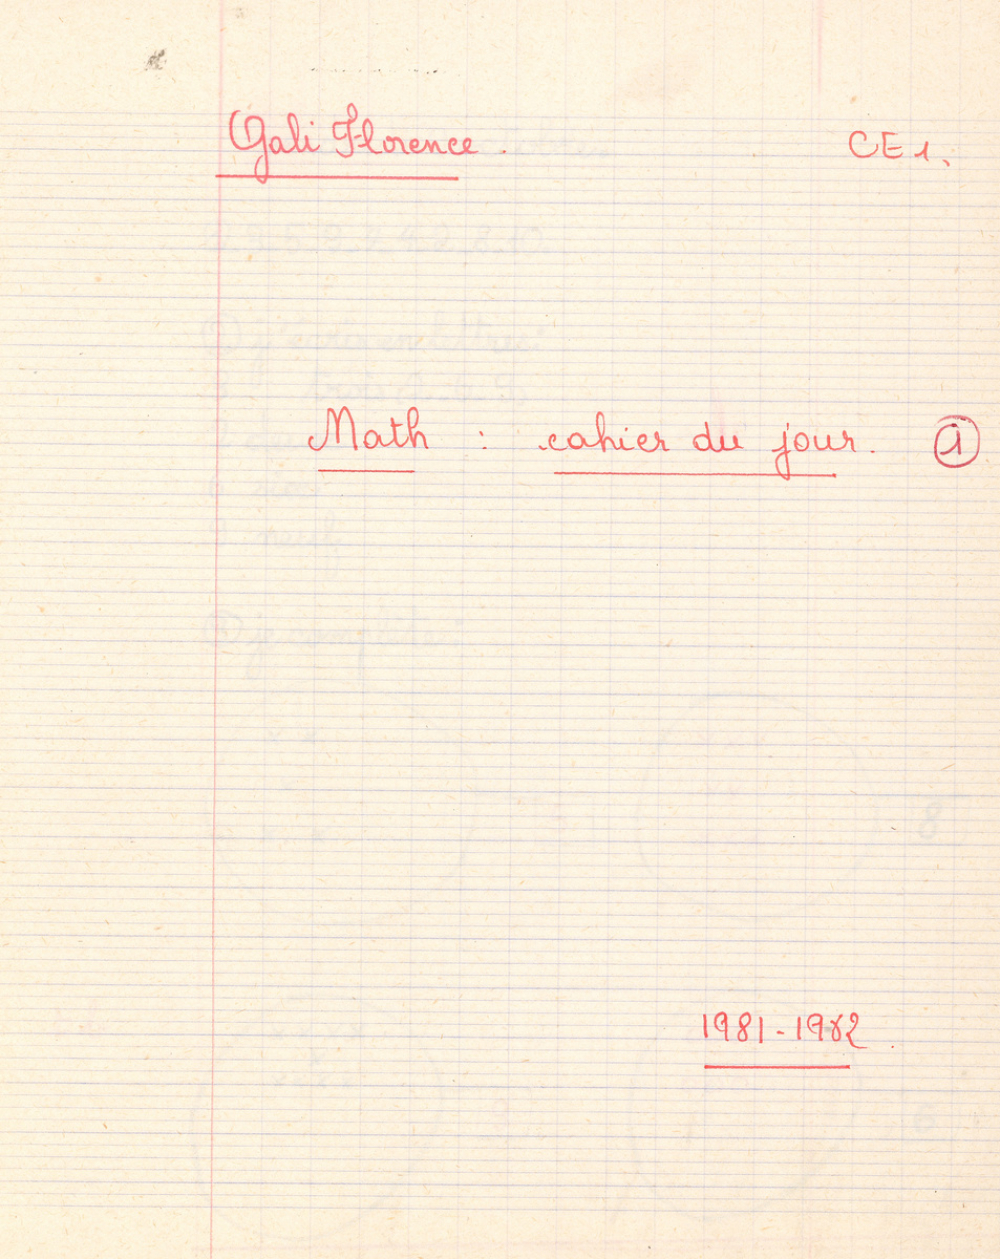 Gali Florence.
CE1.
Math : cahier du jour. 1
1981-1982